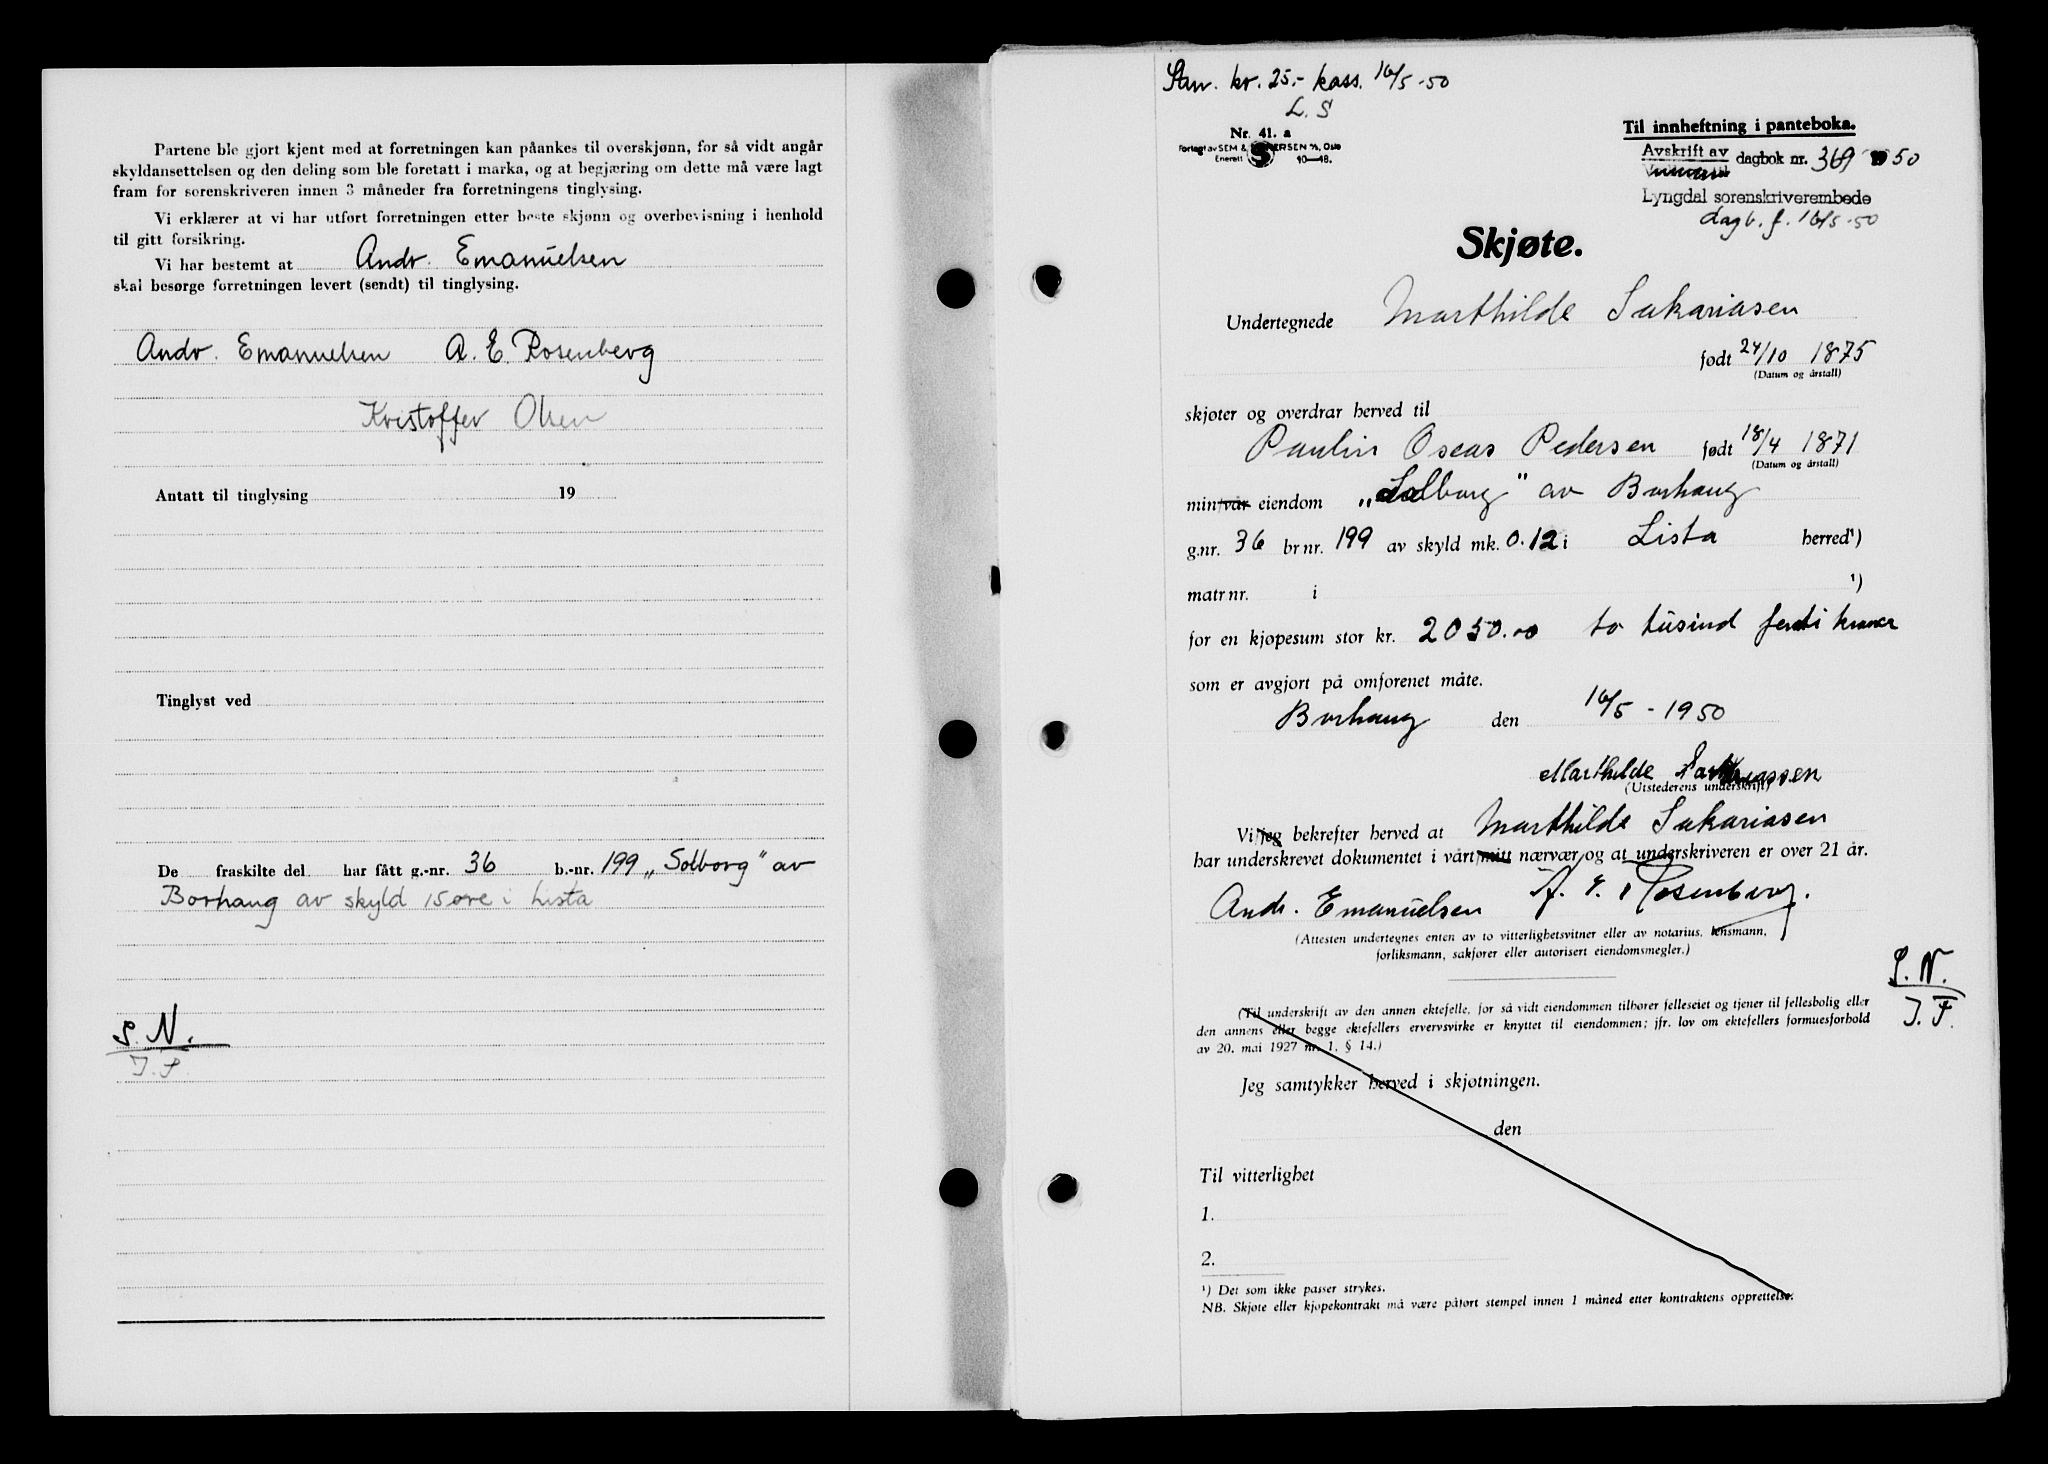 Partene ble gjort kjent med at forretningen kan påankes til overskjønn, for så vidt angår
skyldansettelsen og den deling som ble foretatt i marka, og at begjæring om dette må være lagt
fram for sorenskriveren innen 3 måneder fra forretningens tinglysing.
Vi erklærer at vi har utført forretningen etter beste skjønn og overbevisning i henhold
til gitt forsikring.
Vi har bestemt at Andr. Emanuelsen
skal besørge forretningen levert (sendt) til tinglysing.
Andr. Emanuelsen A. E. Rosenberg
Kristoffer Olsen
Antatt til tinglysing 19
Tinglyst ved
De fraskilte del har fått g.-nr. 36 b.-nr. 199 „Solborg" av
Borhaug av skyld 15 øre i Lista
S. N.
J. F.
Stav. kr. 25.- kass. 16/5-50
L. S
Nr. 41. a
Forlagt av SEM & STENERSEN A/S, Oslo
Enerett 10—48.
Til innheftning i panteboka.
Avskrift av dagbok nr. 369 1950
Lyngdal sorenskriverembede
dagb. f. 16/5-50
Skjøte.
Undertegnede Marthilde Sakariasen
født 24/10 1875
(Datum og årstall)
skjøter og overdrar herved til
Paulin Oseas Pedersen født 18/4 1871
(Datum og årstall)
min/vår eiendom „Solborg" av Borhaug
g.nr. 36 br.nr. 199 av skyld mk. 0.12 i Lista herred¹)
matr.nr. i ¹)
for en kjøpesum stor kr. 2050.00 to tusind femti kroner
som er avgjort på omforenet måte.
Borhaug den 16/5-1950
Marthilde Sakariassen
(Utstederens underskrift)
Vi/jeg bekrefter herved at Marthilde Sakariasen
har underskrevet dokumentet i vårt/mitt nærvær og at underskriveren er over 21 år.
Andr. Emanuelsen A. E. Rosenberg.
(Attesten undertegnes enten av to vitterlighetsvitner eller av notarius, lensmann,
forliksmann, sakfører eller autorisert eiendomsmegler.)
S. N.
J. F.
(Til underskrift av den annen ektefelle, for så vidt eiendommen tilhører felleseiet og tjener til fellesbolig eller
den annens eller begge ektefellers ervervsvirke er knyttet til eiendommen; jfr. lov om ektefellers formuesforhold
av 20. mai 1927 nr. 1, § 14.)
Jeg samtykker herved i skjøtningen.
den
Til vitterlighet
1.
2.
¹) Det som ikke passer strykes.
NB. Skjøte eller kjøpekontrakt må være påført stempel innen 1 måned etter kontraktens opprettelse.